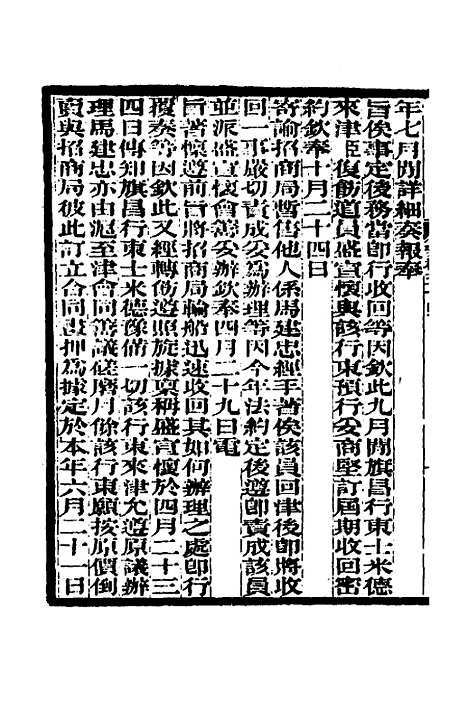 年七月間詳細奏報奉
旨俟事定後務當卽行收回等因欽此九月間旗昌行東士米德
來津臣復飭道員盛宣懷與該行東預行妥商堅訂屆期收回密
約欽奉十月二十四日
寄諭招商局暫售他人係馬建忠經手著俟該員回津後卽將收
回一事嚴切責成妥爲辦理等因今年法約定後遵卽責成該員
並派盛宣懷會籌妥辦欽奉四月二十九日電
旨著懍遵前旨將招商局輪船迅速收回其如何辦理之處卽行
覆奏等因欽此又經轉飭遵照旋據稟稱盛宣懷於四月二十三
四日傳知旗昌行東士米德豫備一切該行東來津允遵原議辦
理馬建忠亦由滬至津會同籌議磋磨月餘該行東願按原價倒
賣與招商局彼此訂立合同畫押爲據定於本年六月二十一日